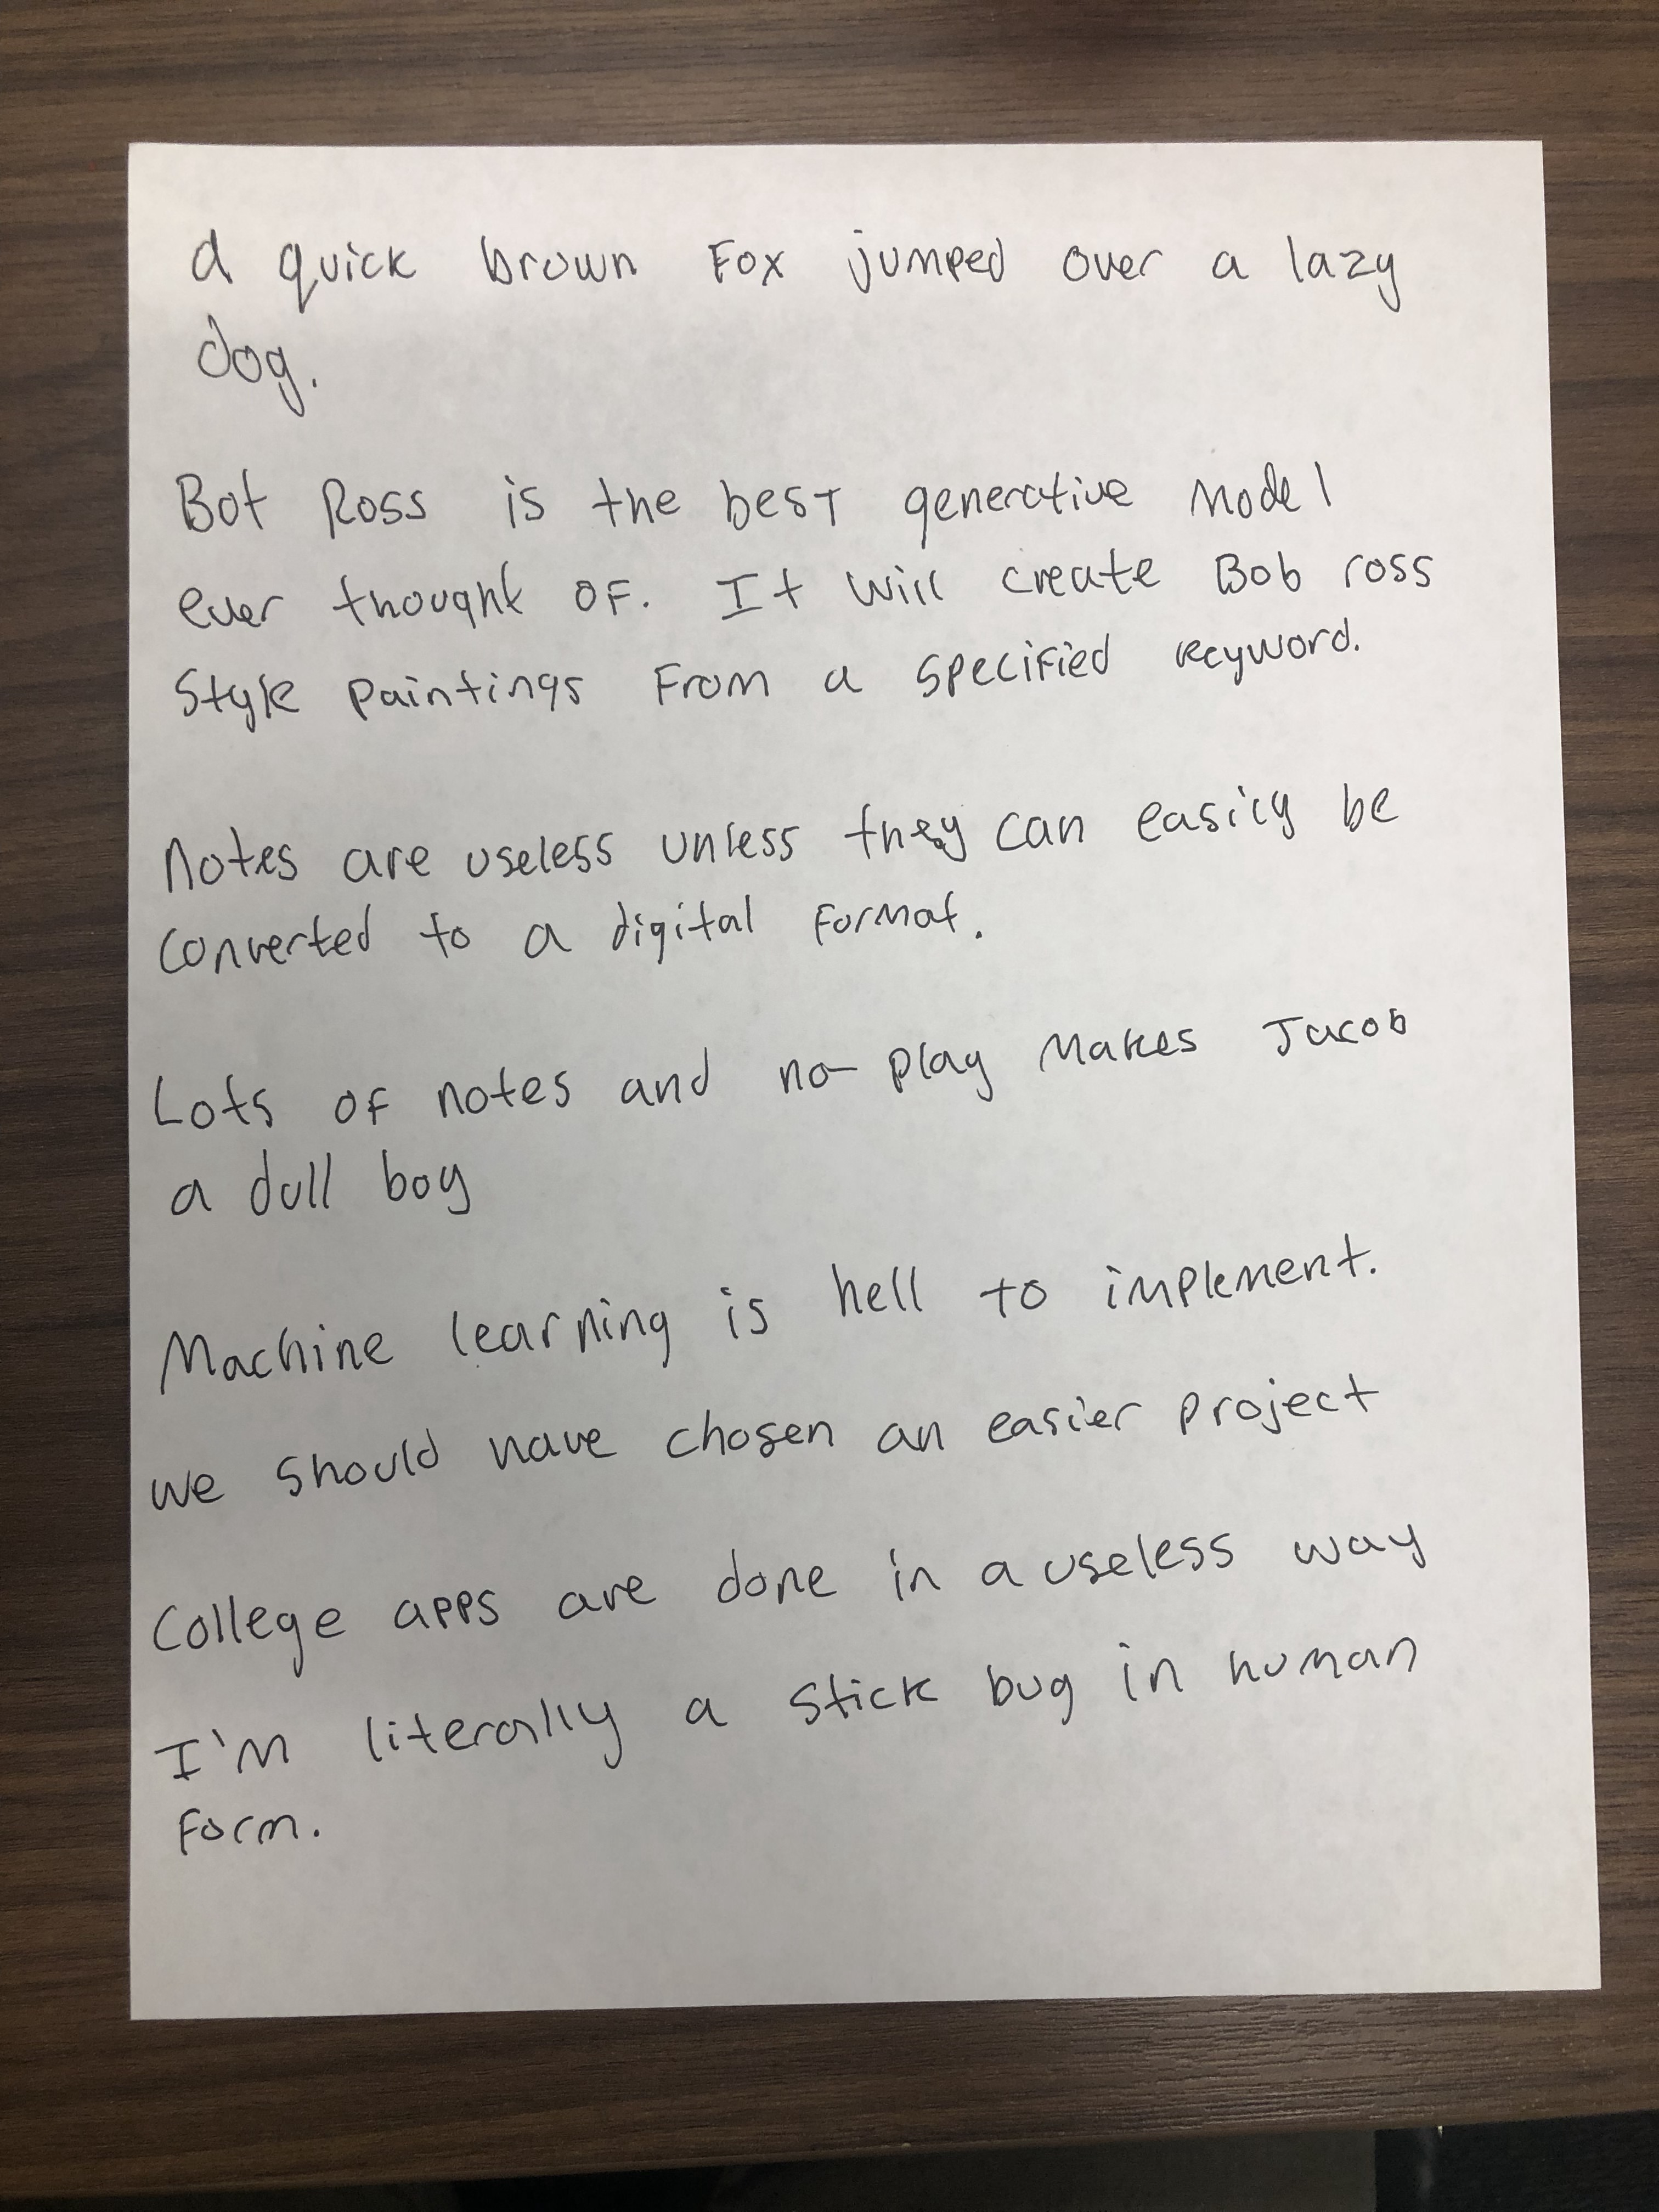 a quick brown Fox jumped over a lazy
dog.
Bot Ross is the best generative model
ever thought of. It will create Bob ross
Style paintings From a specified keyword.
Notes are useless unless they can easily be
converted to a digital format.
Lots of notes and no play makes Jacob
a dull boy
Machine learning is hell to implement.
we should have chosen an easier project
College apps are done in a useless way
I'm literally a stick bug in human
form.